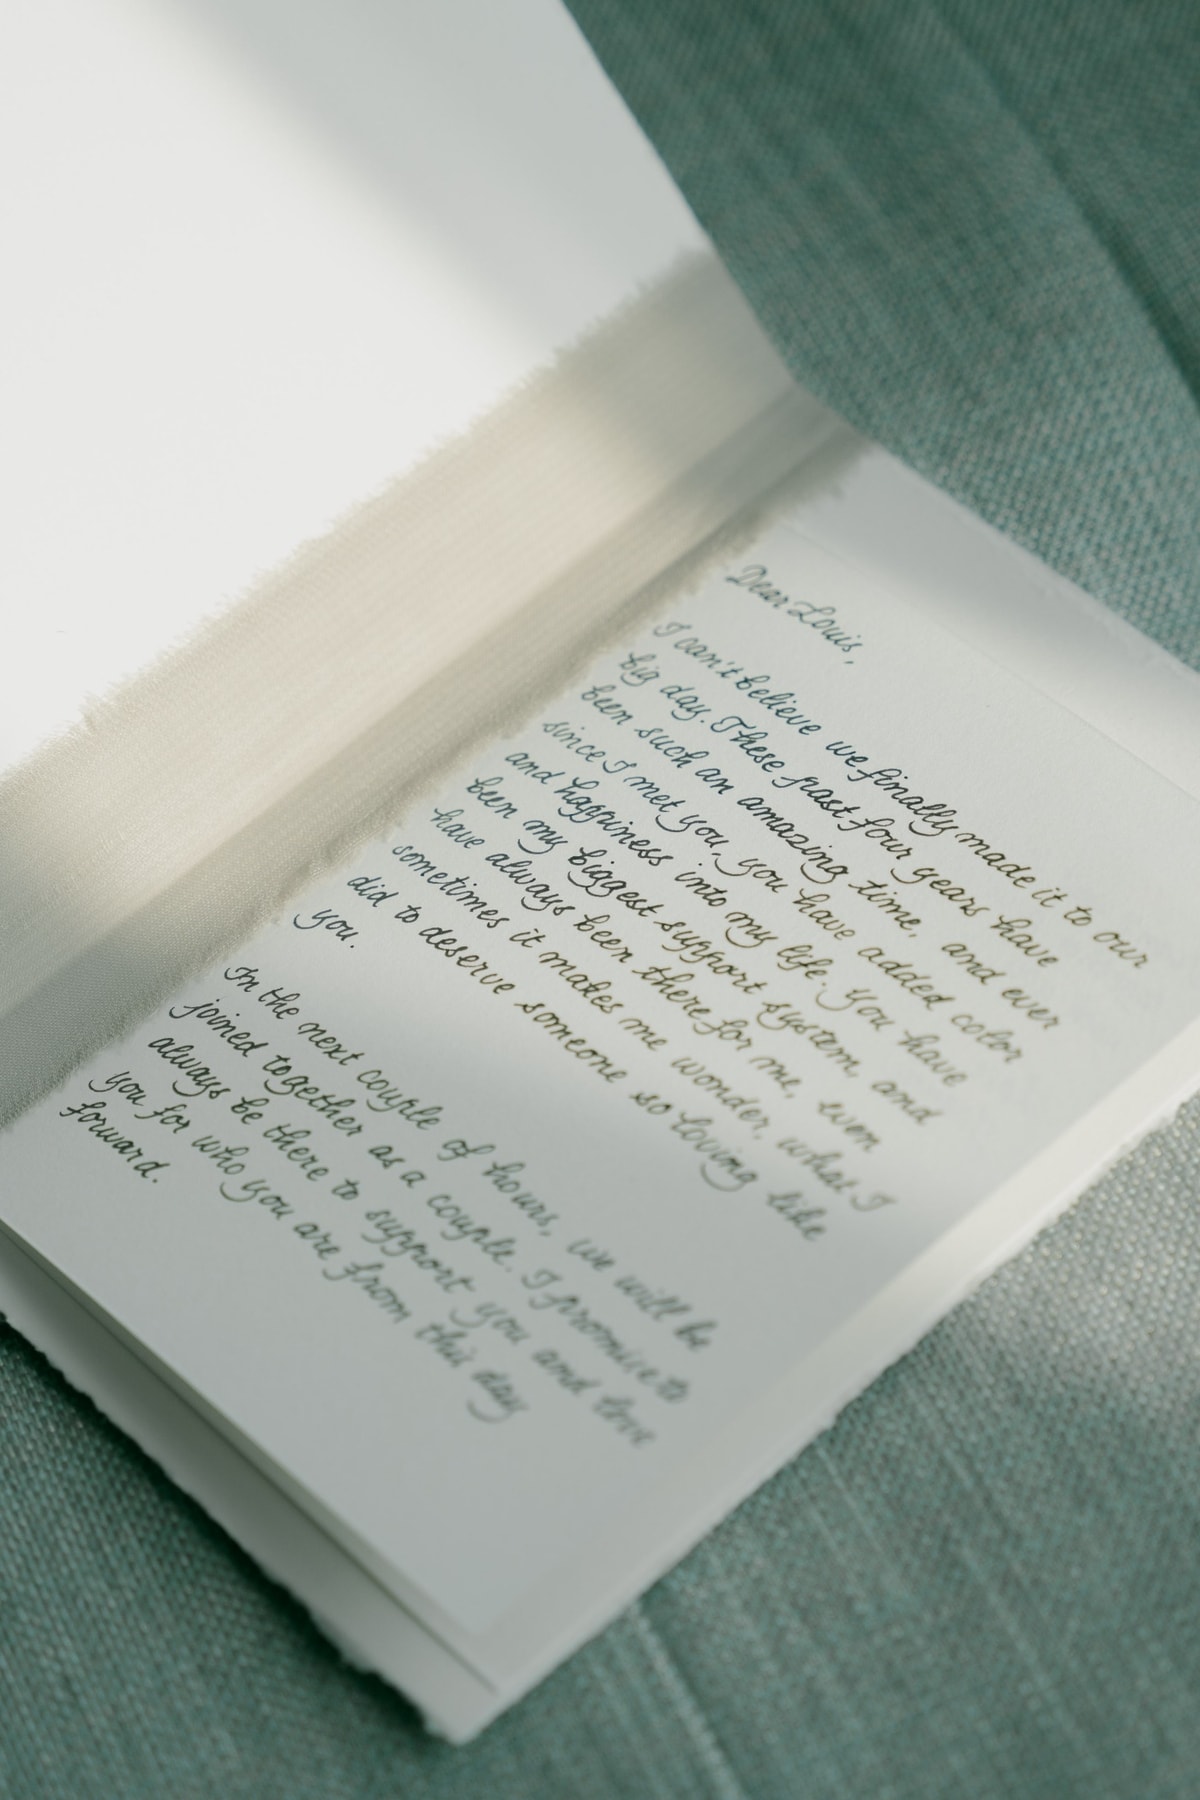 Dear Louis,
I can't believe we finally made it to our
big day. These past four years have
been such an amazing time, and ever
since I met you, you have added color
and happiness into my life. You have
been my biggest support system, and
have always been there for me, even
sometimes it makes me wonder, what I
did to deserve someone so loving like
you.
In the next couple of hours, we will be
joined together as a couple. I promise to
always be there to support you and love
you for who you are from this day
forward.